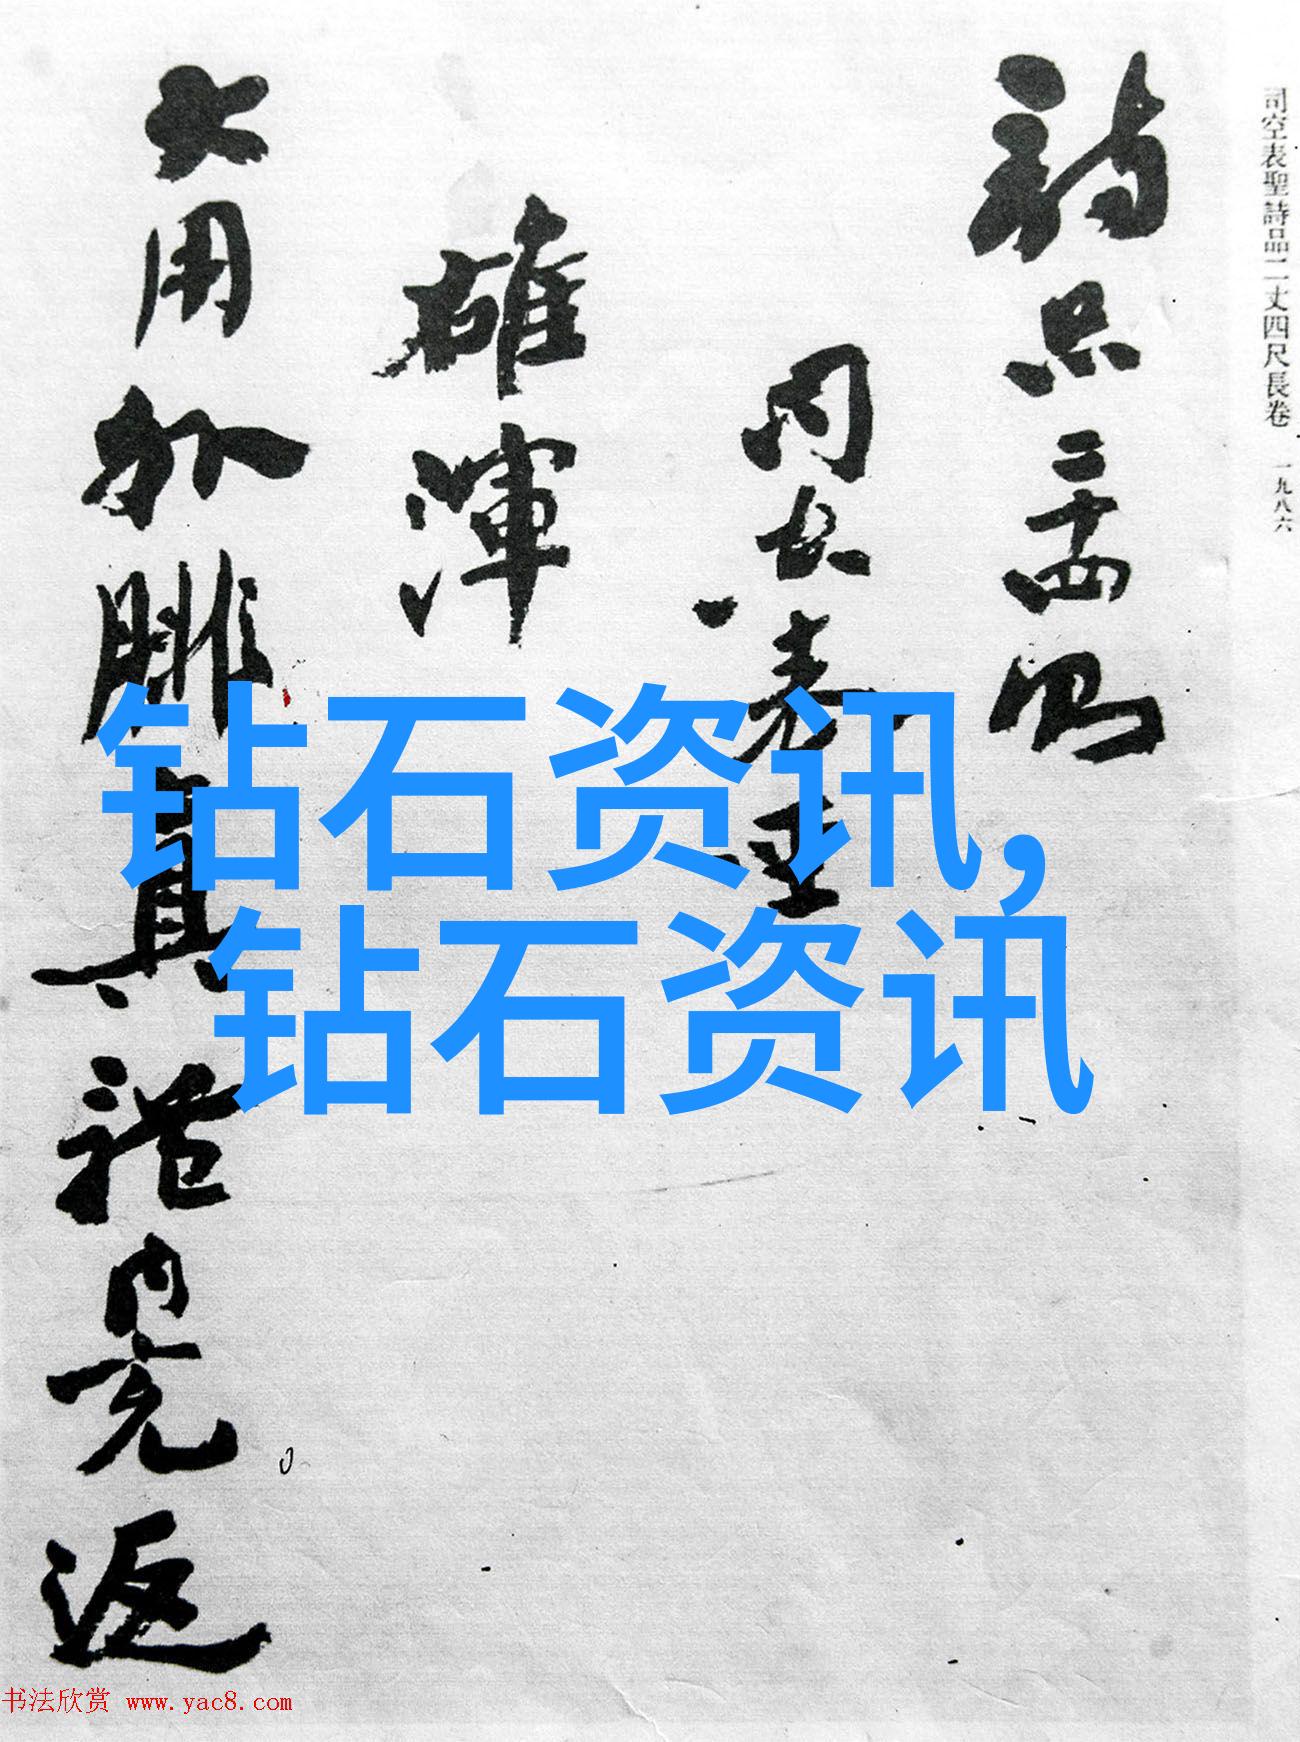 司空表聖詩品二丈四尺長卷 一九八六
詩品二十四則
司空表聖
雄渾
大用外腓真體內充返
钻石资讯,
钻石资讯
书法欣赏 www.yac8.com